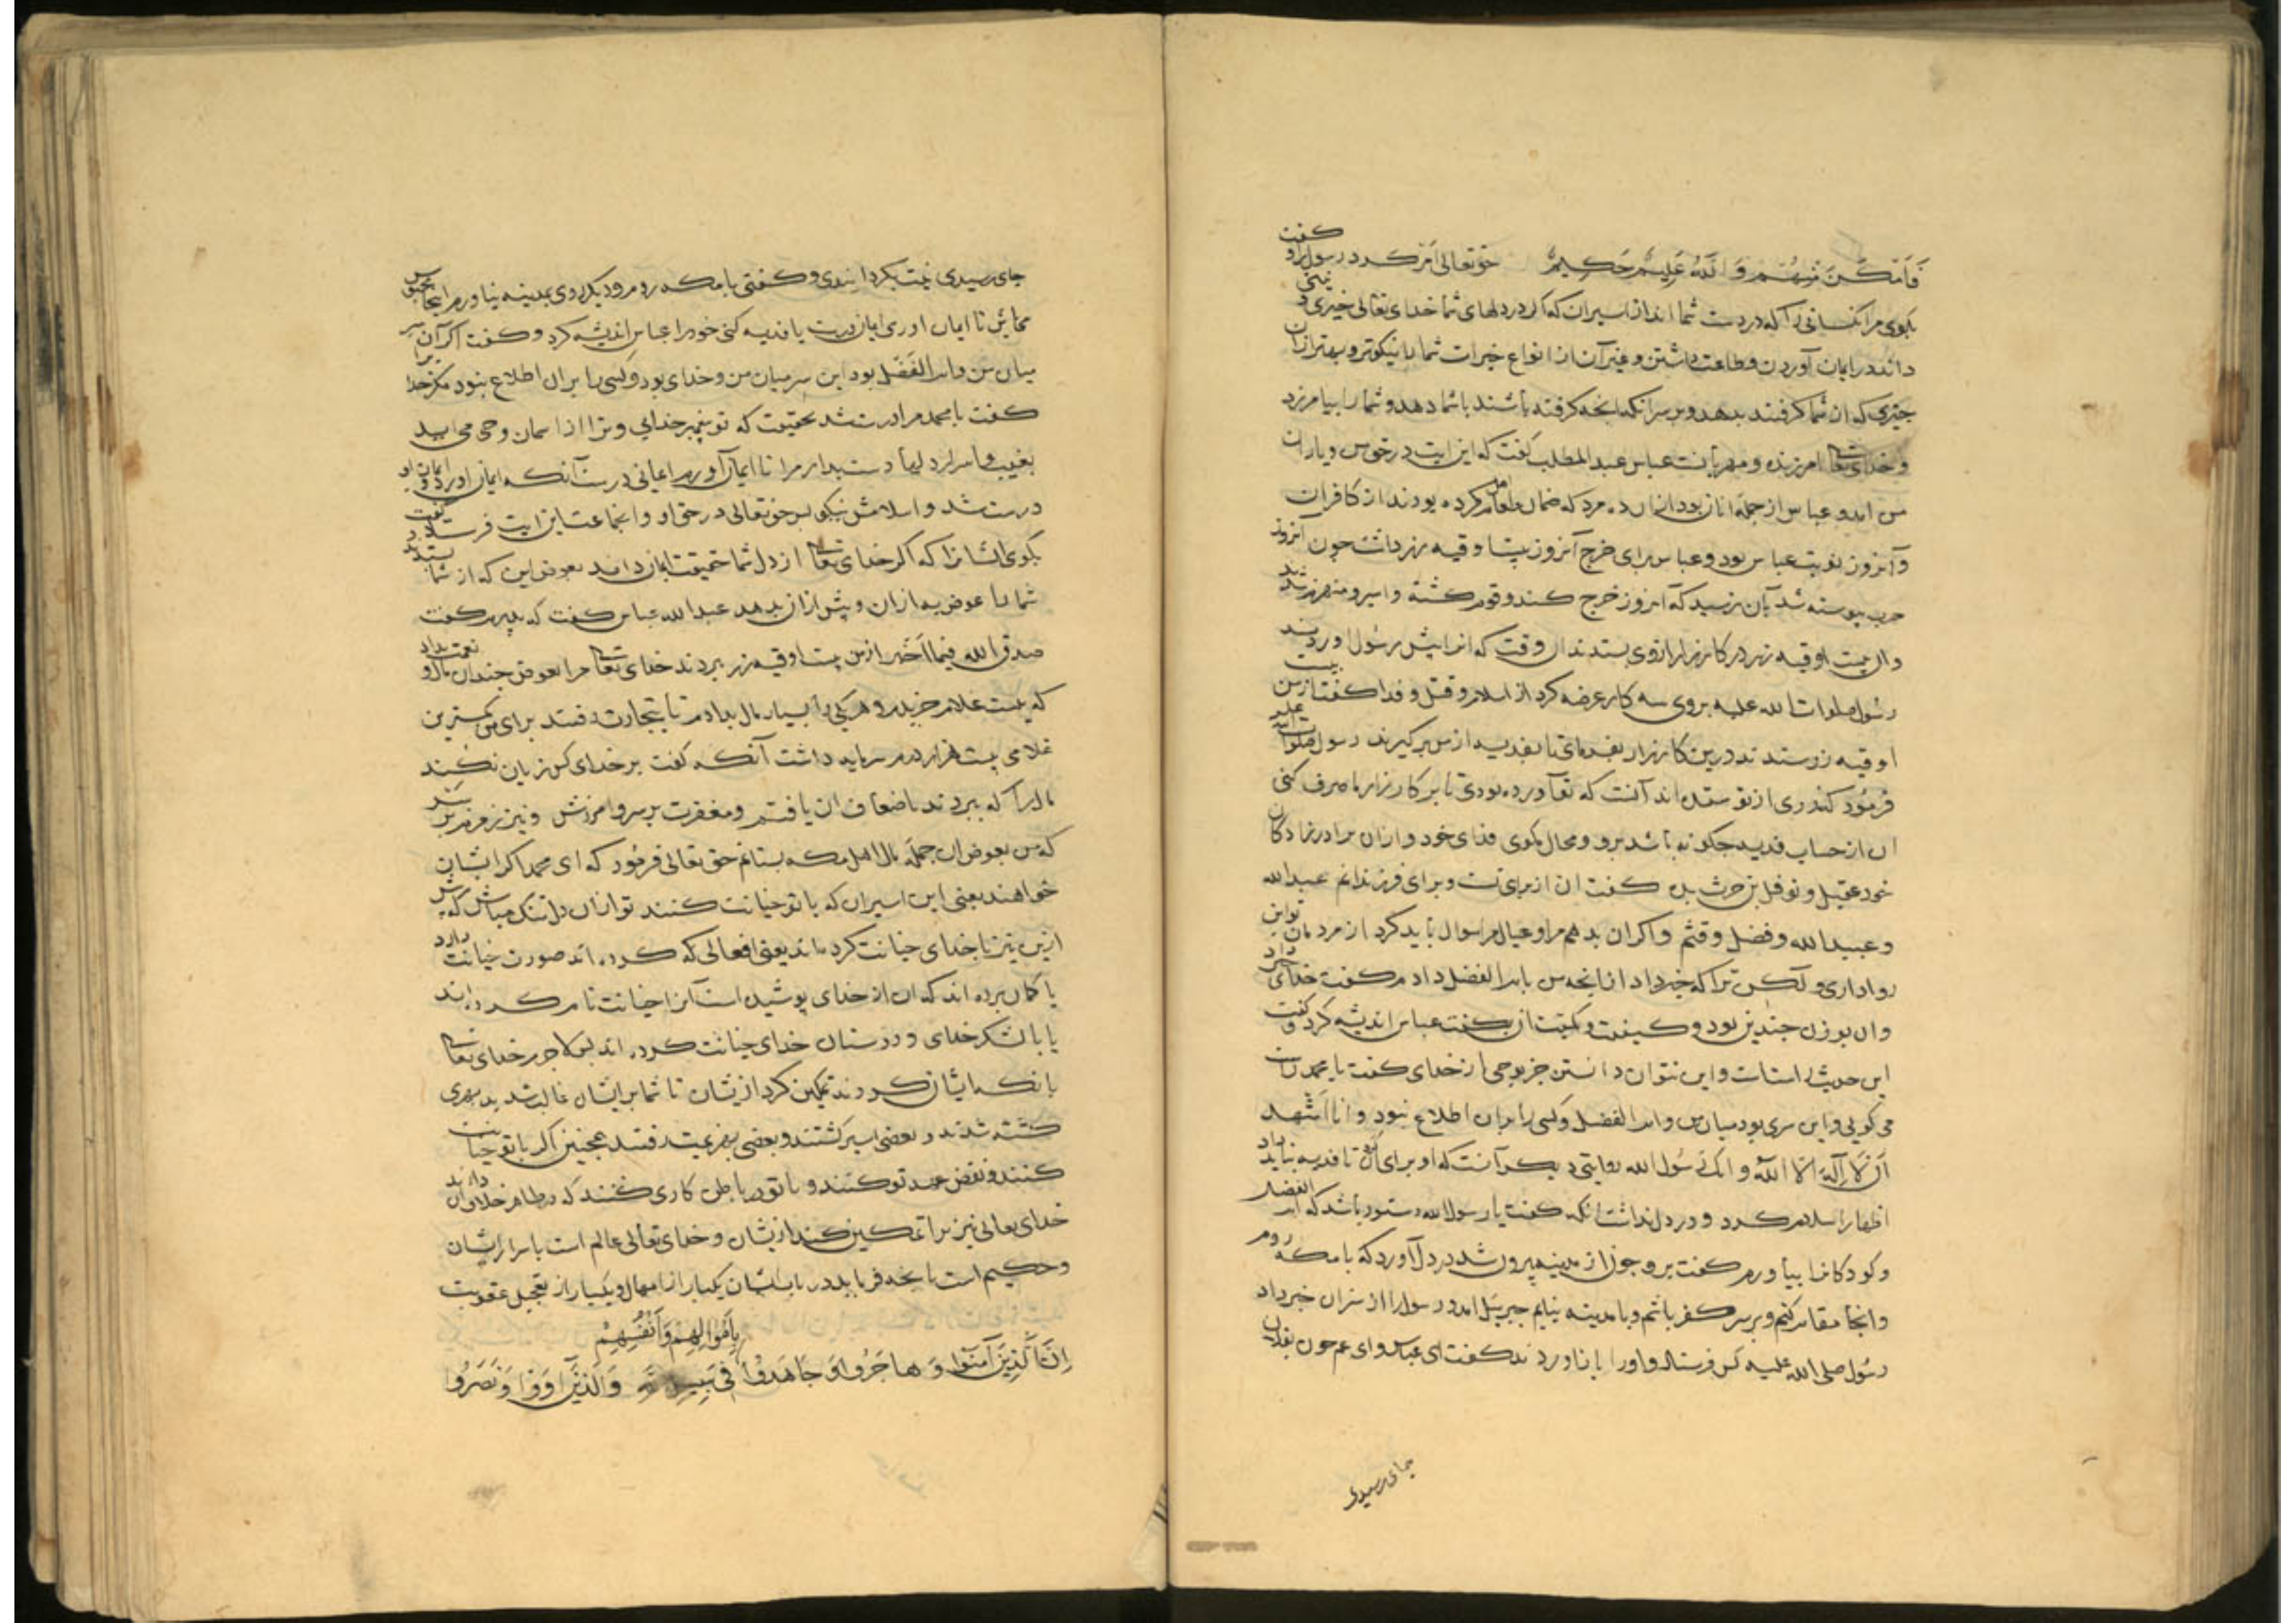 فَاَمْكَنَ مِنْهُمْ وَ اللّٰهُ عَلِيمٌ حَكِيمٌ حق تعالی امر کرد رسول را و گفت
بگوی مر آنکسانی را که در دست شما اند از اسیران که اگر در دلهای شما خدای تعالی خیری و نیتی
داند در ایمان آوردن و طاعت داشتن و غیر آن از انواع خیرات شما را نیکوتر و بهتر از آن
چیزی که از شما گرفتند بدهد و بر سر آنکه آنچه گرفته باشند باشما دهد و شما را بیامرزد
و خدای تعا امرزنده و مهربانست عباس عبد المطلب گفت که این ایت در حق من و یاران
من امد و عباس از جمله انان بود ازان ده مرد که ضمان طعام کرده بودند از کافران
و آنروز نوبت عباس بود و عباس برای خرج آنروز بیست اوقیه زر داشت چون آنروز
حرب پیوسته شد بآن نرسید که آنروز خرج کند و قوم کشته و اسیر و منهزم شدند
و ان بیست اوقیه زر در کارزار ازوی بستدند ان وقت که او را پیش رسول اوردند
رسول صلوات الله علیه بروی سه کار عرضه کرد از اسلام و قتل و فدا گفت از من بیست
اوقیه زر ستدند درین کارزار بفرمای تا بفدیه از من برگیرند رسول صلوات الله علیه
فرمود که زری از تو ستده اند آنست که تو آورده بودی تا بر کارزار ما صرف کنی
ان از حساب فدیه چگونه باشد برو و محال مگوی فدای خود و ازان برادرزادگان
خود عقیل و نوفل بن حرث بده گفت ان از برای تست و برای فرزندانم عبد الله
و عبید الله و فضل و قثم و اگر ان بدهم مرا و عیال مرا سوال باید کرد از مردمان تو این
رواداری و لکن ترا که خبر داد از انچه من بام الفضل دادم گفت خدای خبر داد
و ان بوزن چندین بود و کیفیت و کمیت ان بگفت عباس اندیشه کرد و گفت
این حدیث راستست و این نتوان دانستن جز بوحی از خدای گفت یا محمد راست
می گویی و این سری بود میان من و ام الفضل و کسی را بران اطلاع نبود و انا اشهد
اَنْ لَا اِلٰهَ اِلَّا اللّٰهُ و انک رسول الله روایتی دیگر آنست که او برای آن گفت تا فدیه نباید داد
اظهار اسلام کرد و در دل نداشت انکه گفت یا رسول الله دستور باشد که ام الفضل
و کودکانرا بیاورم گفت برو چون از مدینه بیرون شد در دل آورد که با مکه روم
و انجا مقام کنم و بر سر کفر باشم و با مدینه نیایم جبریل امد و رسول را از سر ان خبر داد
رسول صلی الله علیه کس فرستاد و او را باز اوردند گفت ای عباس و ای عم چون بفلان
جای رسیدی
جای رسیدی نیت بگردانیدی و گفتی با مکه روم و دیگر روی بمدینه نیاورم اینجا بحبس
ما باش تا ایمان اوری ایمان درست یا فدیه کنی خود را عباس اندیشه کرد و گفت اگر آن سر
میان من و ام الفضل بود این سر میان من و خدای بود و کسی را بران اطلاع نبود مگر خدا را
گفت یا محمد مرا درست شد بحقیقت که تو پیغمبر خدایی و ترا از اسمان وحی می اید
بغیب و اسرار دلها دست بدار مرا تا ایمان آورم ایمانی درست آنکه ایمان اورد و ایمان او
درست شد و اسلامش نیکو پس حق تعالی در حق او و انجماعت این ایت فرستاد و گفت
بگوی ایشانرا که اگر خدای تعا از دل شما حقیقت ایمان داند بعوض این که از شما بستدند
شما را عوض به از ان و بیش از ان بدهد عبد الله عباس گفت که پدرم گفت
صدق الله فیما اخبر از من بیست اوقیه زر ببردند خدای تعا مرا بعوض چندان مال و نعمت بداد
که بیست غلام خریدم و هر یکی را بسیار مال بدادم تا بتجارت رفتند برای من کمترین
غلامی بیست هزار درم سرمایه داشت آنکه گفت بر خدای کس زیان نکند
مال را که ببردند باضعاف ان یافتم و مغفرت بر سر و امرزش و نیز
که من بعوض ان جمله مال اهل مکه بستانم حق تعالی فرمود که ای محمد اگر ایشان
خواهند یعنی این اسیران که با تو خیانت کنند تو ازان دلتنگ مباش که پیش
ازین نیز با خدای خیانت کرده اند یعنی افعالی که کرده اند صورت خیانت دارد
یا گمان برده اند که ان از خدای پوشیده است آنرا خیانت نام کرده اند
یا با لشکر خدای و دوستان خدای خیانت کرده اند پس لا جرم خدای تعا
بانکه ایشان کردند تمکین کرد از یشان تا شما بر ایشان غالب شدید بهری
کشته شدند و بعضی اسیر گشتند و بعضی بهزیمت رفتند همچنین اگر با تو خیانت
کنند و نقض عهد تو کنند و با تو در باطن کاری کنند که در ظاهر خلاف ان دارند
خدای تعالی نیز ترا تمکین کند از یشان و خدای تعالی عالم است باسرار ایشان
و حکیم است بانچه فرماید در باب ایشان یکبار از امهال و یکبار از تعجیل عقوبت
بِاَمْوَالِهِمْ وَ اَنْفُسِهِمْ
اِنَّ الَّذِینَ آمَنُوا وَ هَاجَرُوا وَ جَاهَدُوا فِی سَبِیلِ اللّٰهِ وَ الَّذِینَ آوَوْا وَ نَصَرُوا